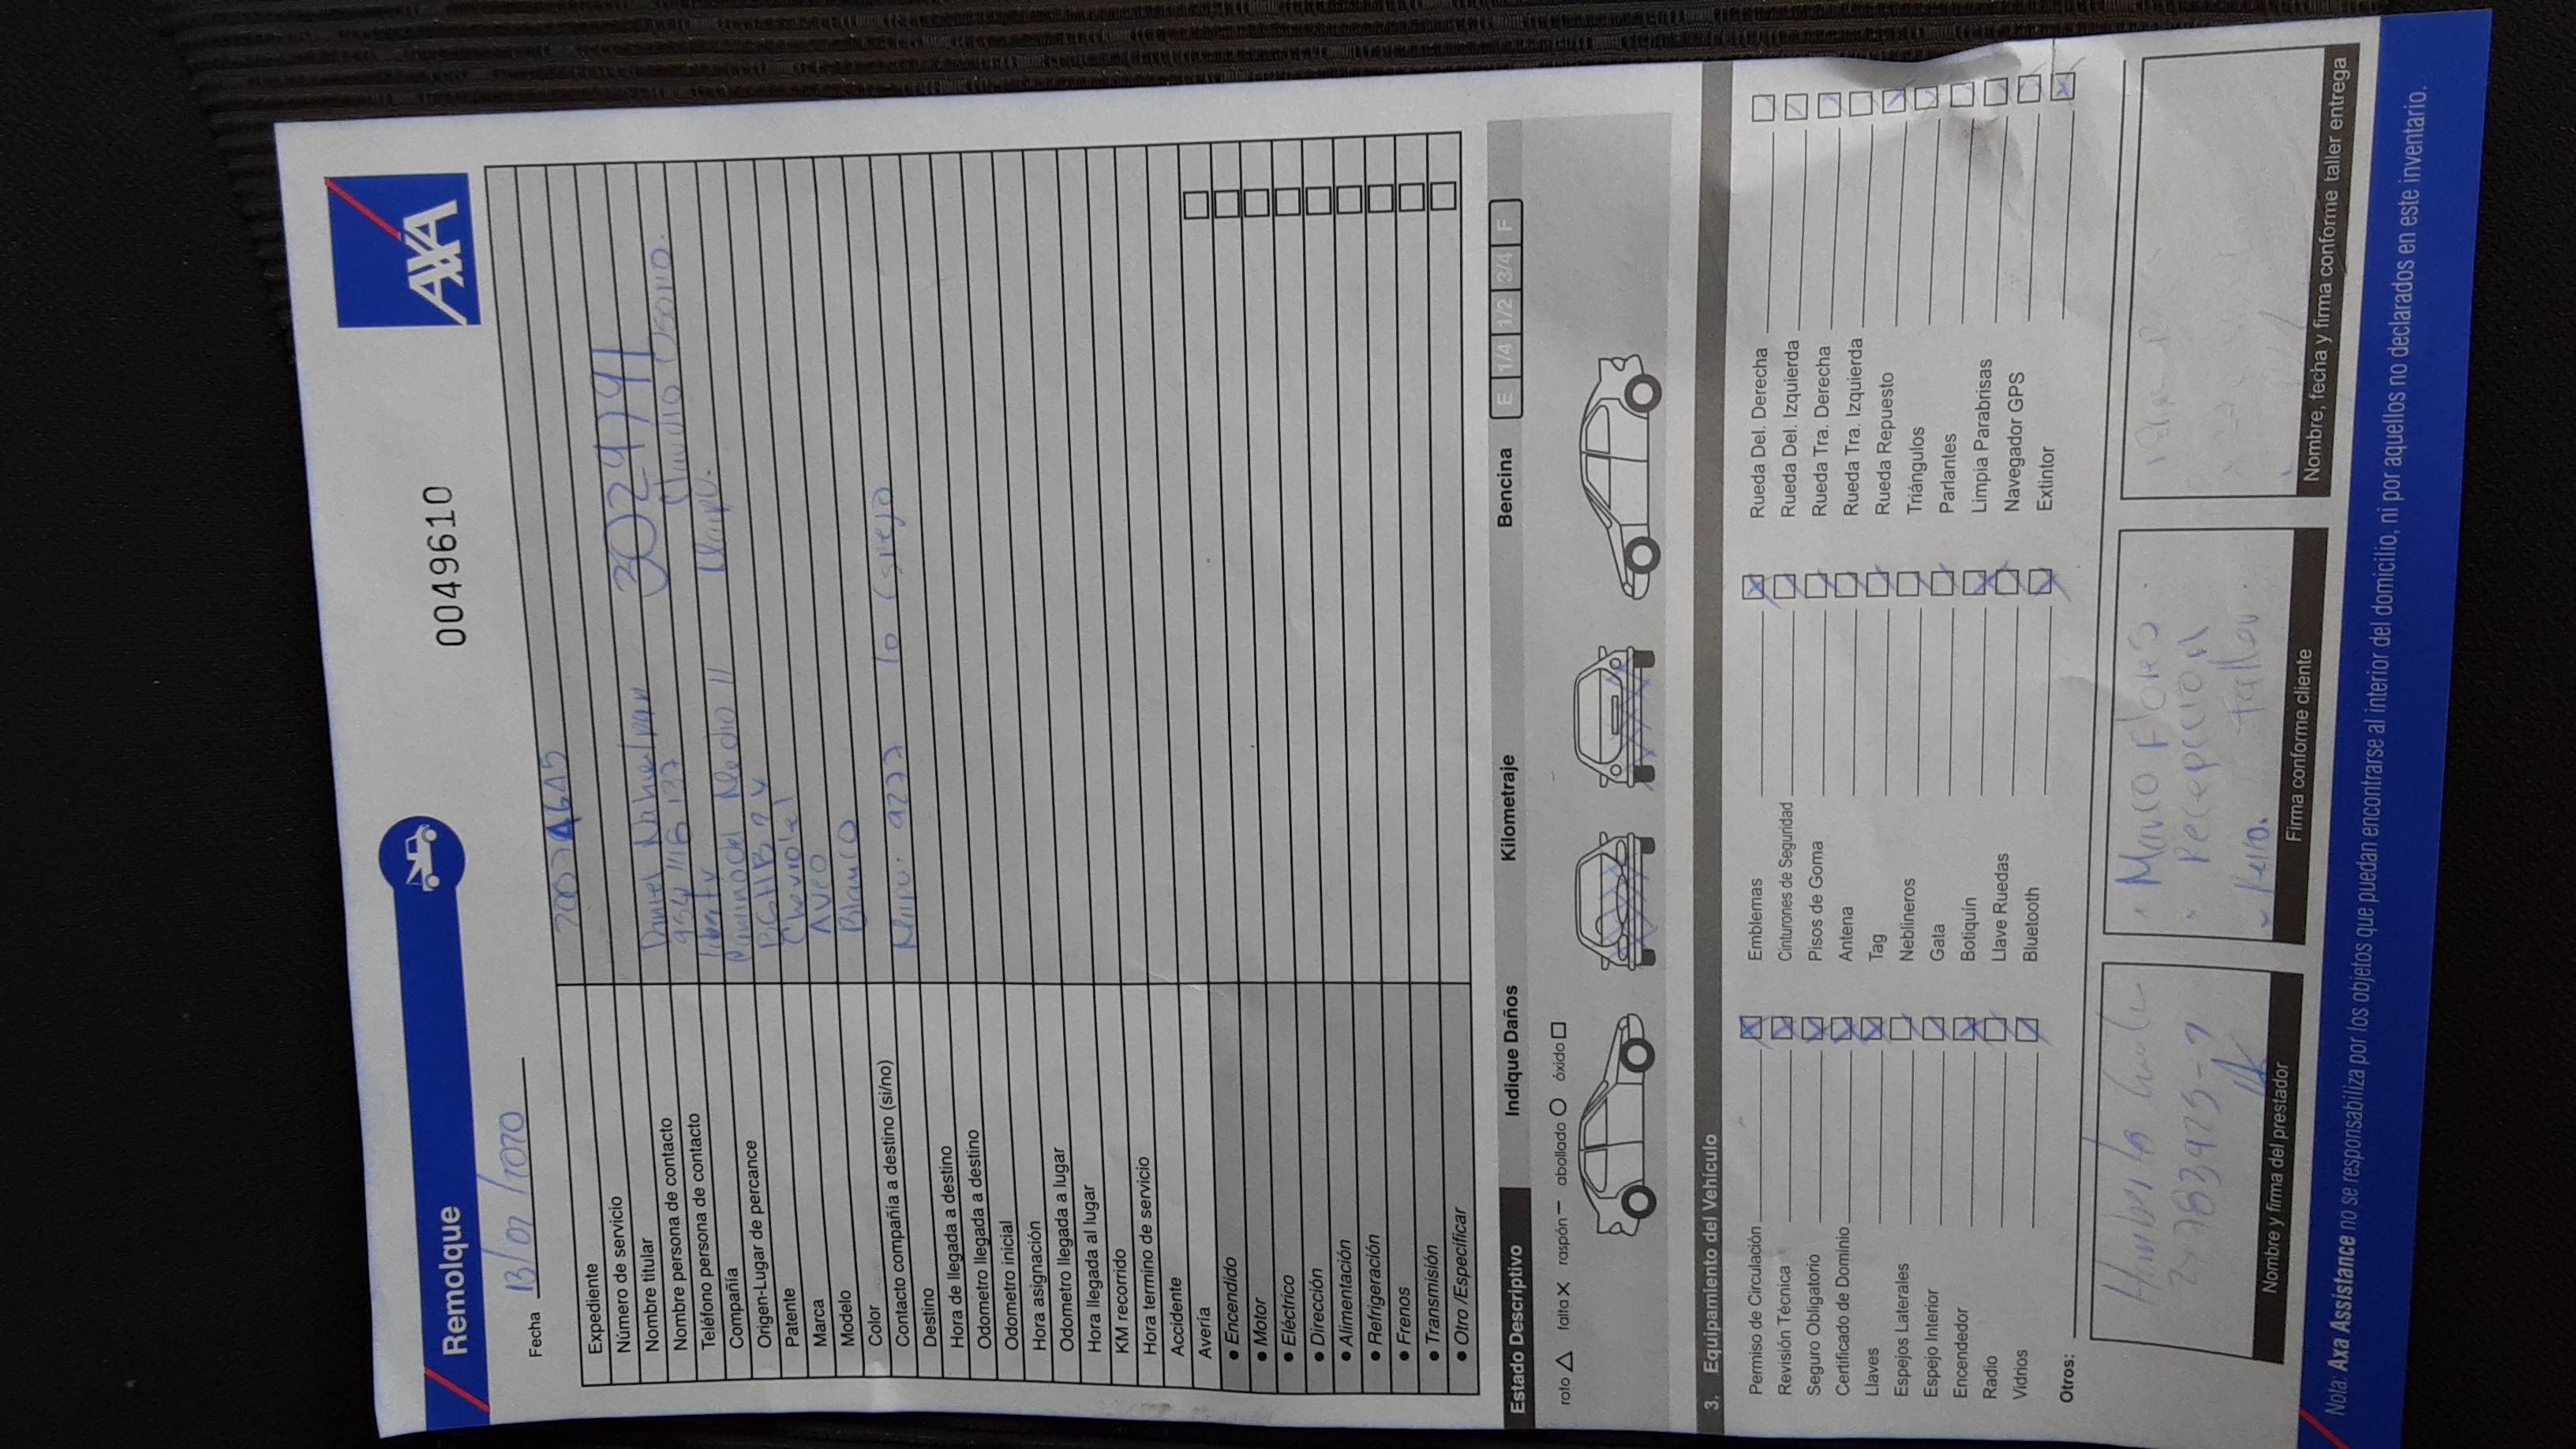 Remolque
AXA
0049610
Fecha 13/02/2020
Expediente
Número de servicio
Nombre titular 3024791
Nombre persona de contacto Claudio Osorio.
Teléfono persona de contacto
Compañía Liberty
Origen-Lugar de percance
Patente
Marca Chevrolet
Modelo Aveo
Color Blanco
Contacto compañía a destino (si/no)
Destino Maipu. 9277 lo Espejo
Hora de llegada a destino
Odometro llegada a destino
Odometro inicial
Hora asignación
Odometro llegada a lugar
Hora llegada al lugar
KM recorrido
Hora termino de servicio
Accidente
Avería
• Encendido
• Motor
• Eléctrico
• Dirección
• Alimentación
• Refrigeración
• Frenos
• Transmisión
• Otro /Especificar
Estado Descriptivo Indique Daños Kilometraje Bencina E 1/4 1/2 3/4 F
roto falta raspón abollado óxido
3. Equipamiento del Vehículo
Permiso de Circulación Emblemas Rueda Del. Derecha
Revisión Técnica Cinturones de Seguridad Rueda Del. Izquierda
Seguro Obligatorio Pisos de Goma Rueda Tra. Derecha
Certificado de Dominio Antena Rueda Tra. Izquierda
Llaves Tag Rueda Repuesto
Espejos Laterales Neblineros Triángulos
Espejo Interior Gata Parlantes
Encendedor Botiquín Limpia Parabrisas
Radio Llave Ruedas Navegador GPS
Vidrios Bluetooth Extintor
Otros:
Humberto
Nombre y firma del prestador
Marco Flores
Recepcion
Taller
Firma conforme cliente
Nombre, fecha y firma conforme taller entrega
Nota: Axa Assistance no se responsabiliza por los objetos que puedan encontrarse al interior del domicilio, ni por aquellos no declarados en este inventario.